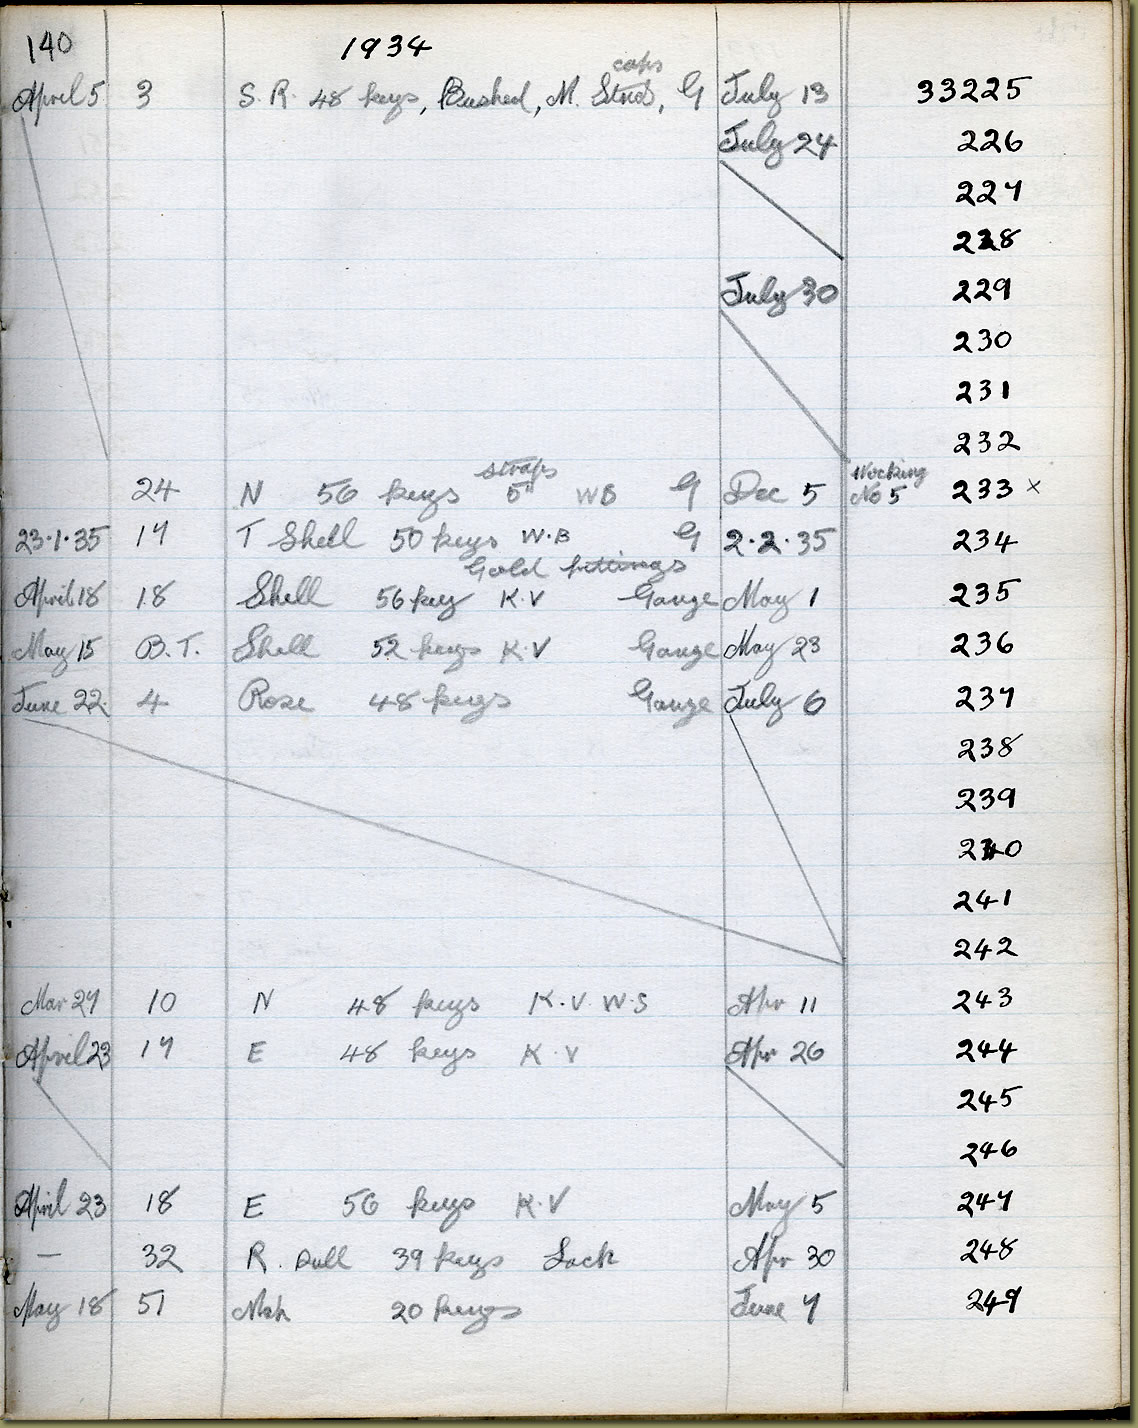 140 1934
caps
April 5 3 S. R. 48 keys, Bushed, M. Studs, G July 13 33225
July 24 226
227
228
July 30 229
230
231
232
straps
24 N 56 keys 5" WB G Dec 5 No 5 233 x
23.1.35 17 T Shell 50 keys W.B G 2.2.35 234
Gold fittings
April 18 18 Shell 56 key K.V Gauge May 1 235
May 15 B.T. Shell 52 keys K.V Gauge May 23 236
June 22 4 Rose 48 keys Gauge July 6 237
238
239
240
241
242
Mar 27 10 N 48 keys K.V. W.S Apr 11 243
April 23 17 E 48 keys K.V Apr 26 244
245
246
April 23 18 E 56 keys K.V May 5 247
— 32 R. Dull 39 keys Lach Apr 30 248
May 18 51 Mah 20 keys June 7 249